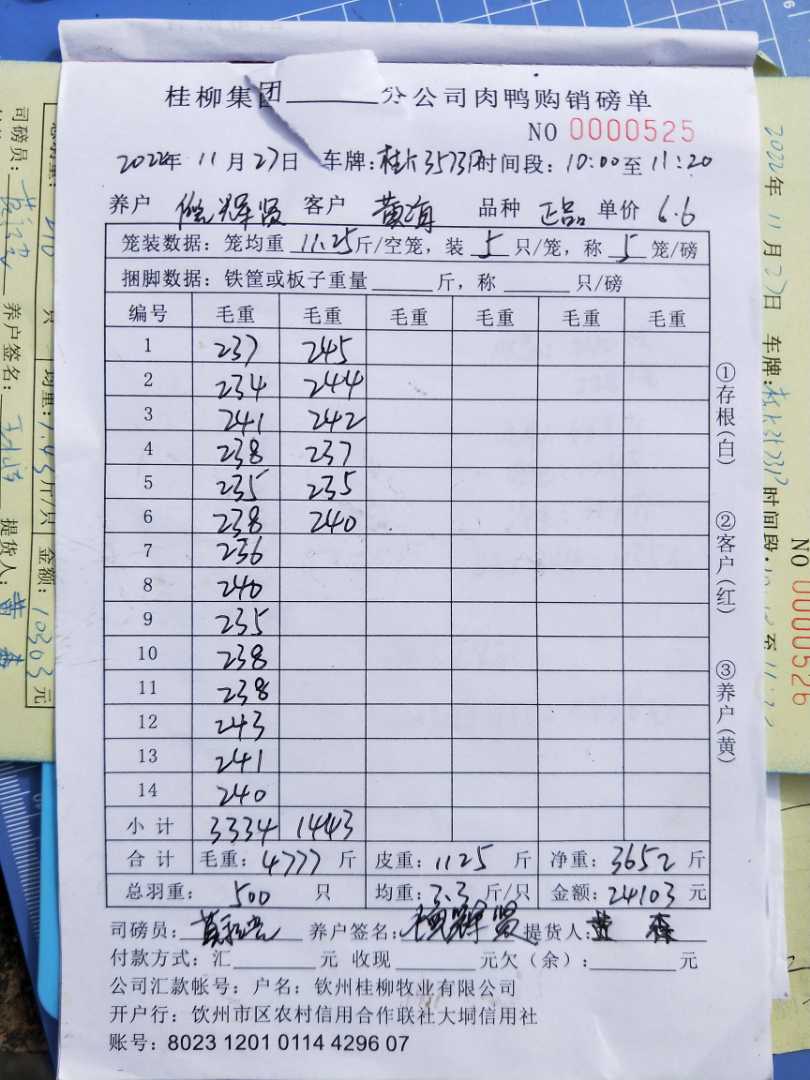 桂柳集团 分公司肉鸭购销磅单
NO 0000525
2022年 11月27日 车牌:桂 3573 时间段: 10:00至 11:20
养户 辉贤 客户 黄 品种 正品 单价 6.6
笼装数据: 笼均重 11.25 斤/空笼, 装 5 只/笼, 称 5 笼/磅
捆脚数据: 铁筐或板子重量 斤, 称 只/磅
编号 毛重 毛重 毛重 毛重 毛重 毛重
1 237 245
2 234 244
3 241 242
4 238 237
5 235 235
6 238 240
7 236
8 240
9 235
10 238
11 238
12 243
13 241
14 240
小计 3334 1443
合计 毛重: 4777 斤 皮重: 1125 斤 净重: 3652 斤
总羽重: 500 只 均重: 7.3 斤/只 金额: 24103 元
司磅员: 黄 养户签名: 辉贤 提货人: 黄森
付款方式: 汇 元 收现 元欠(余): 元
公司汇款帐号: 户名: 钦州桂柳牧业有限公司
开户行: 饮州市区农村信用合作联社大垌信用社
账号: 8023 1201 0114 4296 07
①存根(白)
②客户(红)
③养户(黄)
司磅员:
养户签名:
提货人: 黄森
只 均重: 7.45 斤/只 金额: 10303 元
2022年 11月27日 车牌: 时间段: 至
NO 0000526